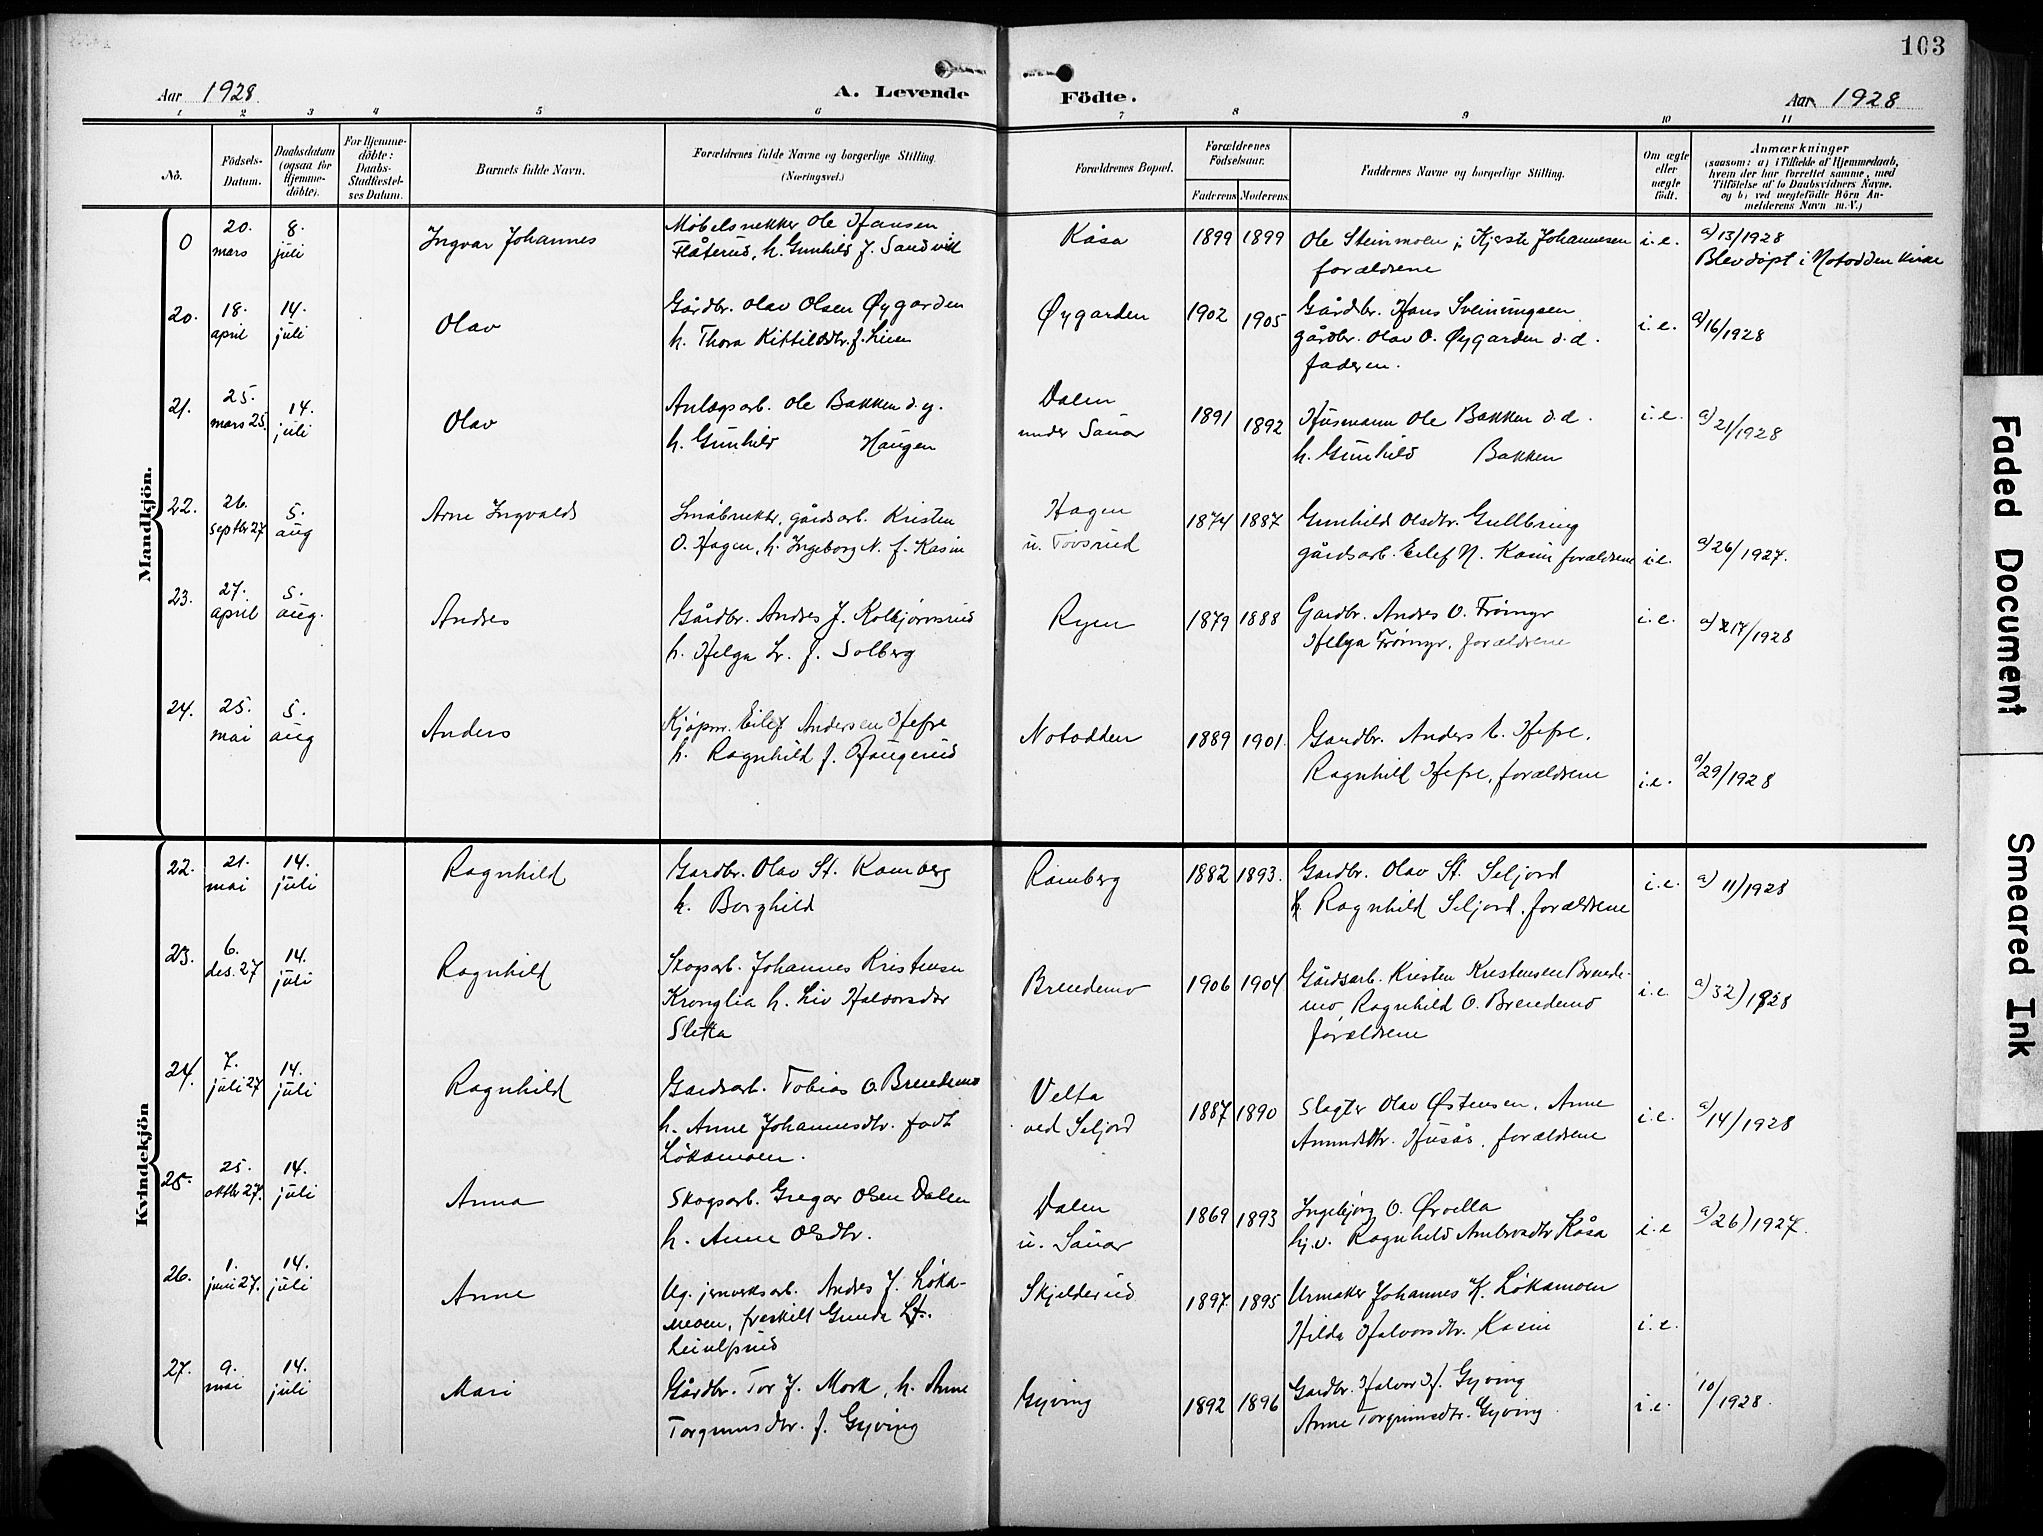 103
Aar 1928.
A. Levende
Födte.
Aar 1928
1 2 3 4 5 6 7 8 9 10 11
No.
Födsels-
Datum.
Daabsdatum
(ogsaa for
Hjemme-
döbte).
For Hjemme-
döbte:
Daabs-
Stadfæstel-
ses Datum.
Barnets fulde Navn.
Forældrenes fulde Navne og borgerlige Stilling.
(Næringsvei.)
Forældrenes Bopæl.
Forældrenes
Födselsaar.
Faderens
Moderens
Faddernes Navne og borgerlige Stilling.
Om ægte
eller
uægte
födt.
Anmærkninger
(saasom: a) i Tilfælde af Hjemmedaab,
hvem der har forrettet samme, med
Tilföielse af to Daabsvidners Navne,
og b) ved uægtefödte Börn An-
melderens Navn m. V.)
Mandkjön.
0
20. mars
8. juli
Ingvar Johannes
Møbelsnekker Ole Hansen
Flåterud, h. Gunhild f. Sandvik
Kåsa
1899 1899
Ole Steinmoen, Kjerste Johannesen
forældrene
i.e.
a) 13/1928
Blev døpt i Notodden kirke
20.
18. april
14. juli
Olav
Gårdbr. Olav Olsen Øygarden
h. Thora Kittilsdtr. f. Lien
Øygarden
1902 1905
Gårdbr. Hans Sveinungsen
gårdbr. Olav O. Øygarden d.d.
faderen.
i.e.
a) 16/1928
21.
25. mars 25.
14. juli
Olav
Anlægsarb. Ole Bakken d.y.
h. Gunhild Haugen
Dalen
under Sauar
1891 1892
Husmann Ole Bakken d.d.
h. Gunhild Bakken
i.e.
a) 21/1928
22.
26. septbr 27
5. aug
Arne Ingvald
Småbruker, gårdsarb. Kristen
O. Hagen, h. Ingeborg N. f. Kasin
Hagen
u. Tovsrud
1874 1887
Gunhild Olsdtr. Gullbring
gårdsarb. Eilef N. Kasin forældrene
i.e.
a) 26/1927.
23.
27. april
5. aug.
Andres
Gårdbr. Andres J. Kolbjørnsrud
h. Helga Lr. f. Solberg
Ryen
1879 1888
Gardbr. Andres O. Trømyr
Helga Trømyr. forældrene
i.e.
a) 17/1928
24.
25. mai
5. aug
Anders
Kjøpm. Eilef Andersen Hefre
h. Ragnhild f. Haugerud
Notodden
1889 1901.
Gardbr. Anders E. Hefre.
Ragnhild Hefre, forældrene
i.e.
a) 29/1928
Kvindekjön
22.
21. mai
14. juli
Ragnhild
Gardbr. Olav St. Ramberg
h. Borghild
Ramberg
1882 1893.
Gardbr. Olav St. Seljord
h. Ragnhild Seljord, forældrene
i.e.
a) 11/1928
23.
6. des. 27
14. juli
Ragnhild
Skogsarb. Johannes Kristensen
Kronglia h. Liv Halvorsdtr
Sletta
Brendemo
1906 1904
Gårdsarb. Kristen Kristensen Brende-
mo, Ragnhild O. Brendemo
forældrene
i.e.
a) 32) 1928
24.
7. juli 27
14. juli
Ragnhild
Gardsarb. Tobias O. Brendemo
h. Anne Johannesdtr. født
Løkamoen.
Velta
ved Seljord
1887 1890
Slagter Olav Østensen, Anne
Amundsdtr. Husås, forældrene
i.e.
a) 14/1928
25.
25. oktbr 27.
14. juli
Anna
Skogsarb. Gregar Olsen Dalen
h. Anne Olsdtr.
Dalen
u. Sauar
1869 1893
Ingebjørg O. Ørvella
hj.v. Ragnhild Ambrosdtr Kåsa
i.e
a) 26) 1927.
26.
1. juni 27.
14. juli
Anne
Ug. jernverksarb. Andres J. Løka-
moen, fraskilt Gunda
Skjelderud
1897 1895
Urmaker Johannes K. Løkamoen
Hilda Halvorsdtr. Kasin
i.e.
27.
9. mai
14. juli
Mari
Gårdbr. Tor J. Mork, h. Anne
Torgrimsdtr. f. Gyving
Gyving
1892 1896
Gardbr. Halvor H. Gyving
Anne Torgrimsdtr. Gyving
i.e.
10/1928.
Faded Document
Smeared Ink